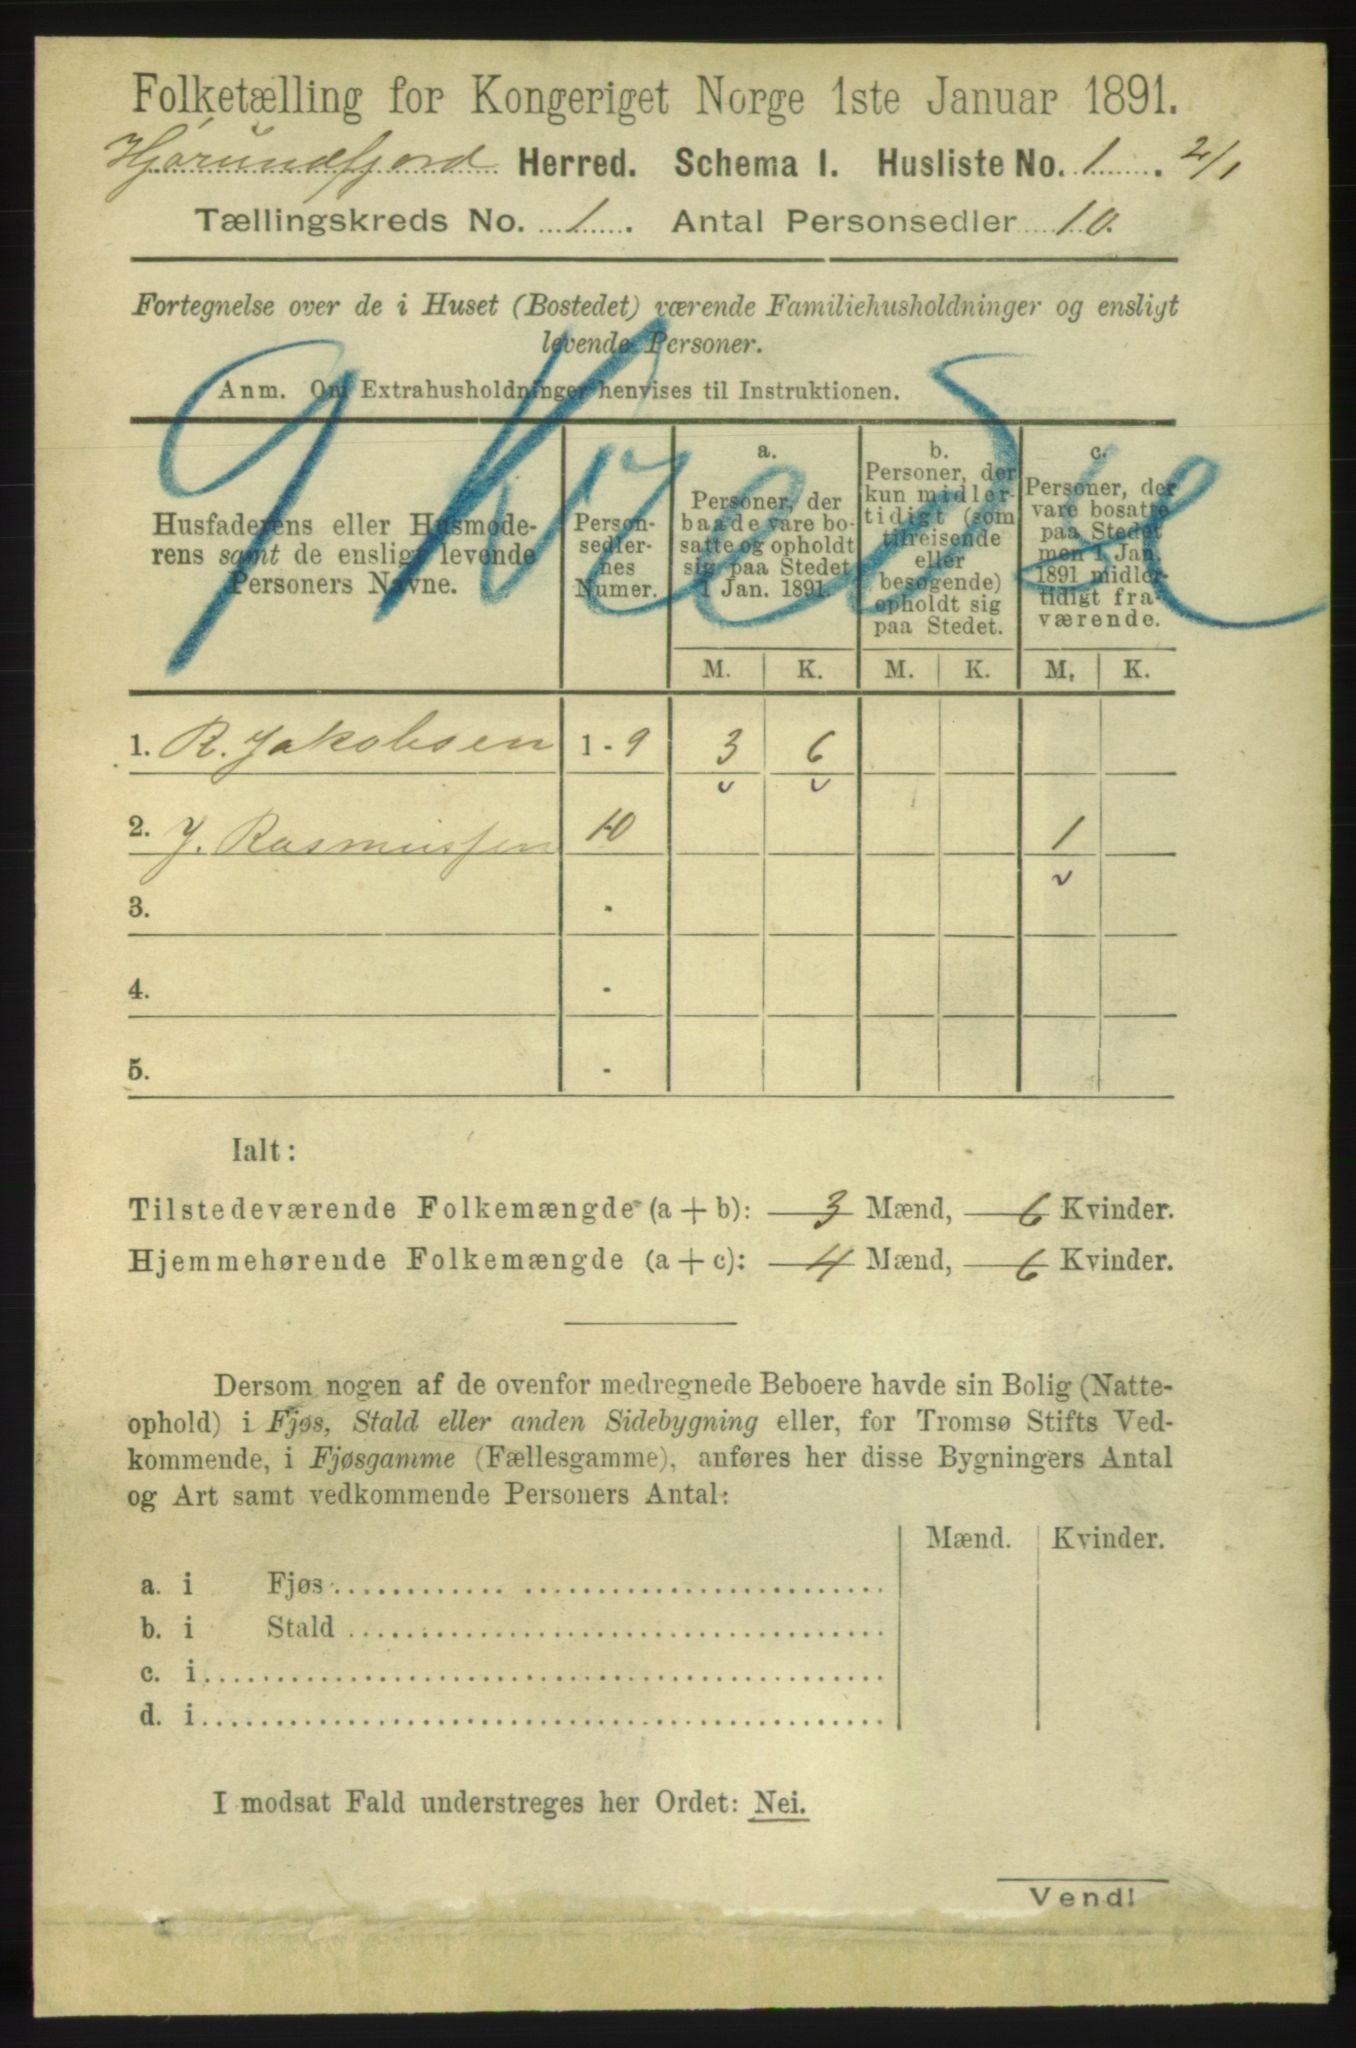 Folketælling for Kongeriget Norge 1ste Januar 1891.
Hjørundfjord Herred. Schema I. Husliste No. 1. 2/1
Tællingskreds No. 1. Antal Personsedler 10.
Fortegnelse over de i Huset (Bostedet) værende Familiehusholdninger og ensligt
levende Personer.
Anm. Om Extrahusholdninger henvises til Instruktionen.
Husfaderens eller Husmode-
rens samt de ensligt levende
Personers Navne.
Person-
sedler-
nes
Numer.
a.
Personer, der
baade vare bo-
satte og opholdt
sig paa Stedet
1 Jan. 1891.
b.
Personer, der
kun midler-
tidigt (som
tilreisende
eller
besøgende)
opholdt sig
paa Stedet.
c.
Personer, der
vare bosatte
paa Stedet
men 1 Jan.
1891 midler-
tidigt fra-
værende.
M. K. M. K. M. K.
1. R. Jakobsen 1 - 9 3 6
2. J. Rasmussen 10 1
3. -
4. -
5. -
Ialt:
Tilstedeværende Folkemængde (a + b): 3 Mænd, 6 Kvinder.
Hjemmehørende Folkemængde (a + c): 4 Mænd, 6 Kvinder.
Dersom nogen af de ovenfor medregnede Beboere havde sin Bolig (Natte-
ophold) i Fjøs, Stald eller anden Sidebygning eller, for Tromsø Stifts Ved-
kommende, i Fjøsgamme (Fællesgamme), anføres her disse Bygningers Antal
og Art samt vedkommende Personers Antal:
Mænd. Kvinder.
a. i Fjøs
b. i Stald
c. i
d. i
I modsat Fald understreges her Ordet: Nei.
Vend!